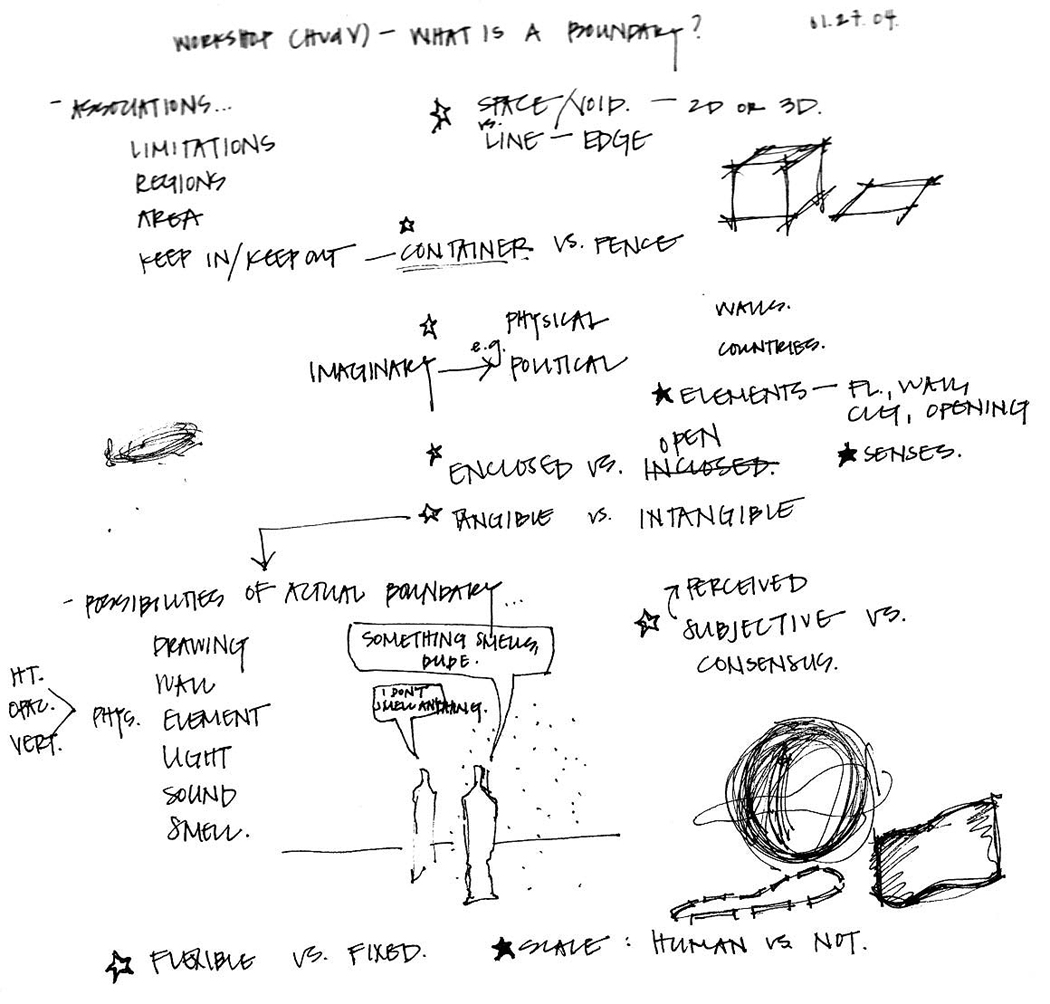 WORKSHOP (HUGV) - WHAT IS A BOUNDARY? 01.27.04.
- ASSOCIATIONS...
LIMITATIONS
REGIONS
AREA
KEEP IN/KEEP OUT — CONTAINER VS. FENCE
SPACE/VOID. — 2D OR 3D.
VS.
LINE — EDGE
PHYSICAL
IMAGINARY e.g. POLITICAL
WALLS.
COUNTRIES.
ELEMENTS — FL., WALL,
CLG, OPENING
SENSES.
OPEN
ENCLOSED VS. INCLOSED.
TANGIBLE VS. INTANGIBLE
- POSSIBILITIES OF ACTUAL BOUNDARY...
DRAWING
WALL
HT.
OPAC.
VERT.
PHYS. ELEMENT
LIGHT
SOUND
SMELL.
SOMETHING SMELLS,
DUDE.
I DON'T
SMELL ANYTHING.
PERCEIVED
SUBJECTIVE VS.
CONSENSUS.
FLEXIBLE VS. FIXED.
SCALE: HUMAN VS NOT.